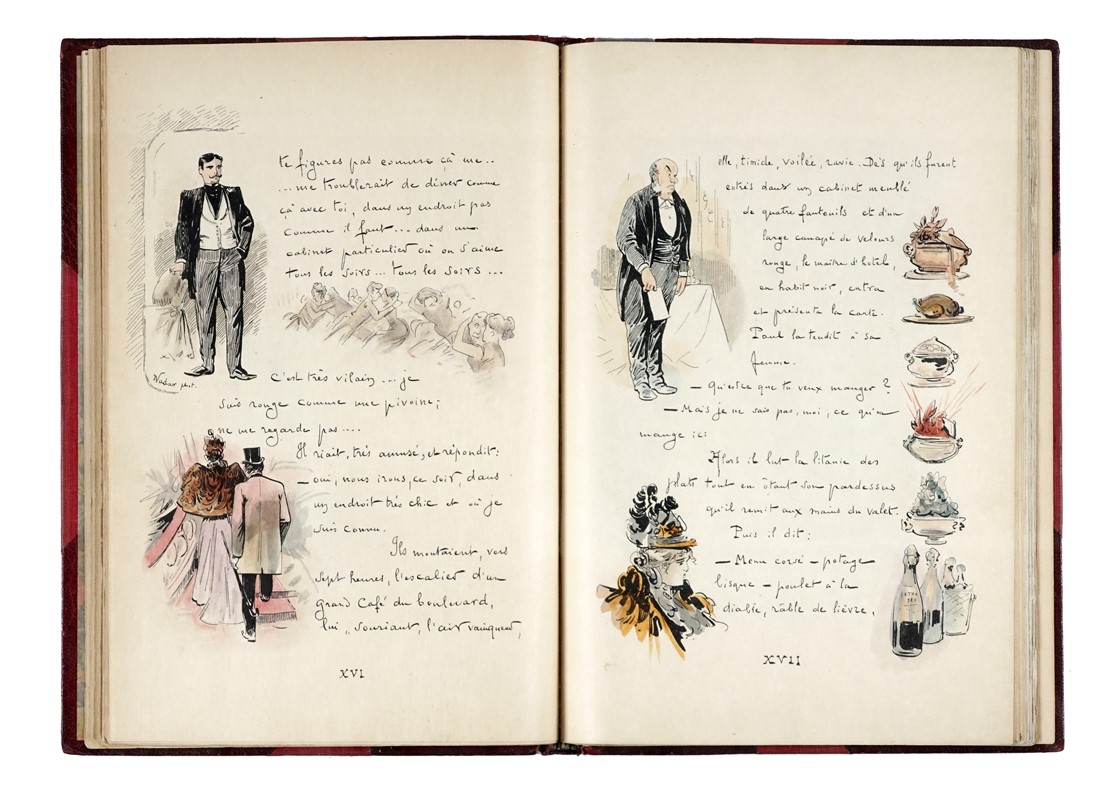 te figures pas comme çà me..
... me troublerait de dîner comme
çà avec toi, dans un endroit pas
comme il faut... dans un
cabinet particulier où on s'aime
tous les soirs... tous les soirs...
Nadar phot.
C'est très vilain... je
suis rouge comme une pivoine;
ne me regarde pas....
Il riait, très amusé, et répondit:
— oui, nous irons, ce soir, dans
un endroit très chic et où je
suis connu.
Ils montaient, vers
sept heures, l'escalier d'un
grand Café du boulevard,
lui, souriant, l'air vainqueur,
XVI
elle, timide, voilée, ravie. Dès qu'ils furent
entrés dans un cabinet meublé
de quatre fauteuils et d'un
large canapé de velours
rouge, le maître d'hôtel,
en habit noir, entra
et présenta la carte.
Paul la tendit à sa
femme.
— Qu'est ce que tu veux manger?
— Mais je ne sais pas, moi, ce qu'on
mange ici
Alors il lut la litanie des
plats tout en ôtant son pardessus
qu'il remit aux mains du valet.
Puis il dit:
— Menu corsé — potage
bisque — poulet à la
diable, râble de lièvre,
EXTRA
DRY
XVII